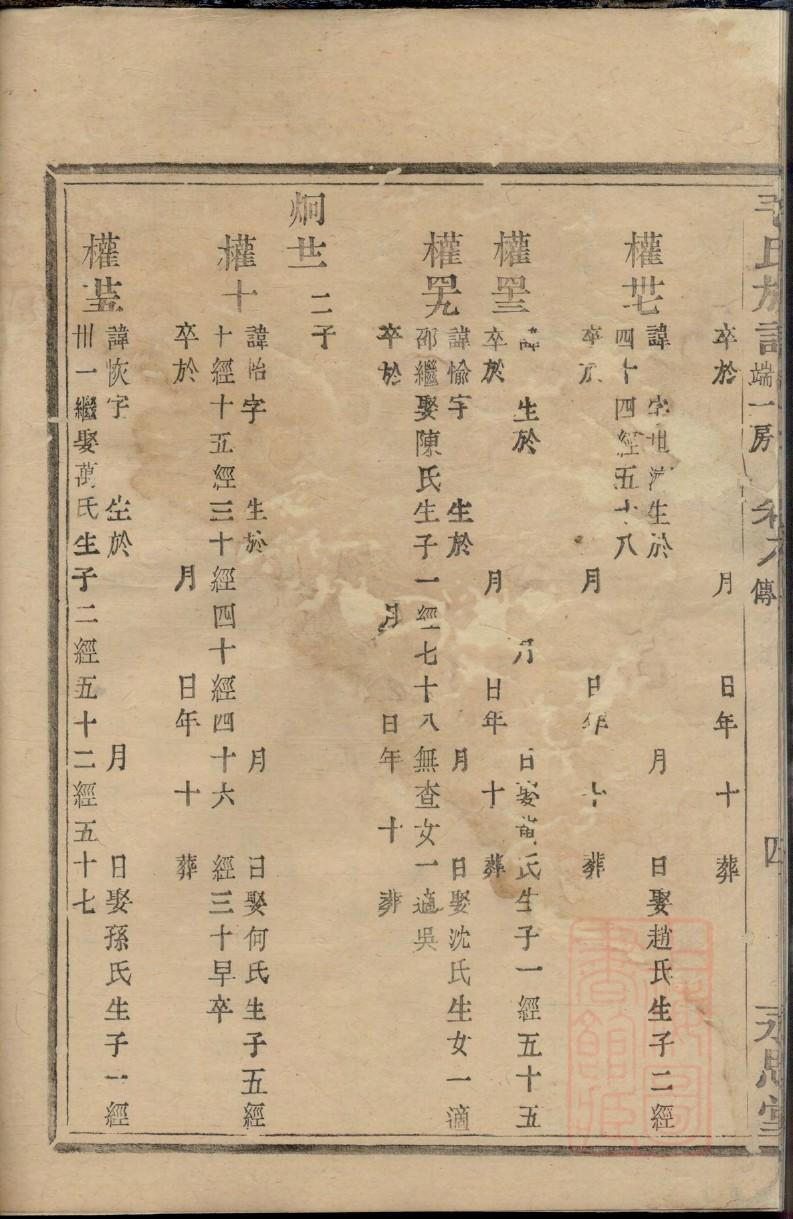 氏族譜 端一房 傳 四 永思堂
卒於 月 日年 十 葬
權 諱 字 生於 月 日娶趙氏生子二經
四十四經五十八
卒於 月 日年 十 葬
權 諱 生於 月 日娶黃氏生子一經五十五
卒於 月 日年 十 葬
權 諱愉字 生於 月 日娶沈氏生女一適
邵繼娶陳氏生子一經七十八無查女一適吳
卒於 月 日年 十 葬
炯 二子
權十 諱怡字 生於 月 日娶何氏生子五經
十經十五經三十經四十經四十六 經三十早卒
卒於 月 日年 十 葬
權 諱恢字 生於 月 日娶孫氏生子一經
卅一繼娶萬氏生子二經五十二經五十七